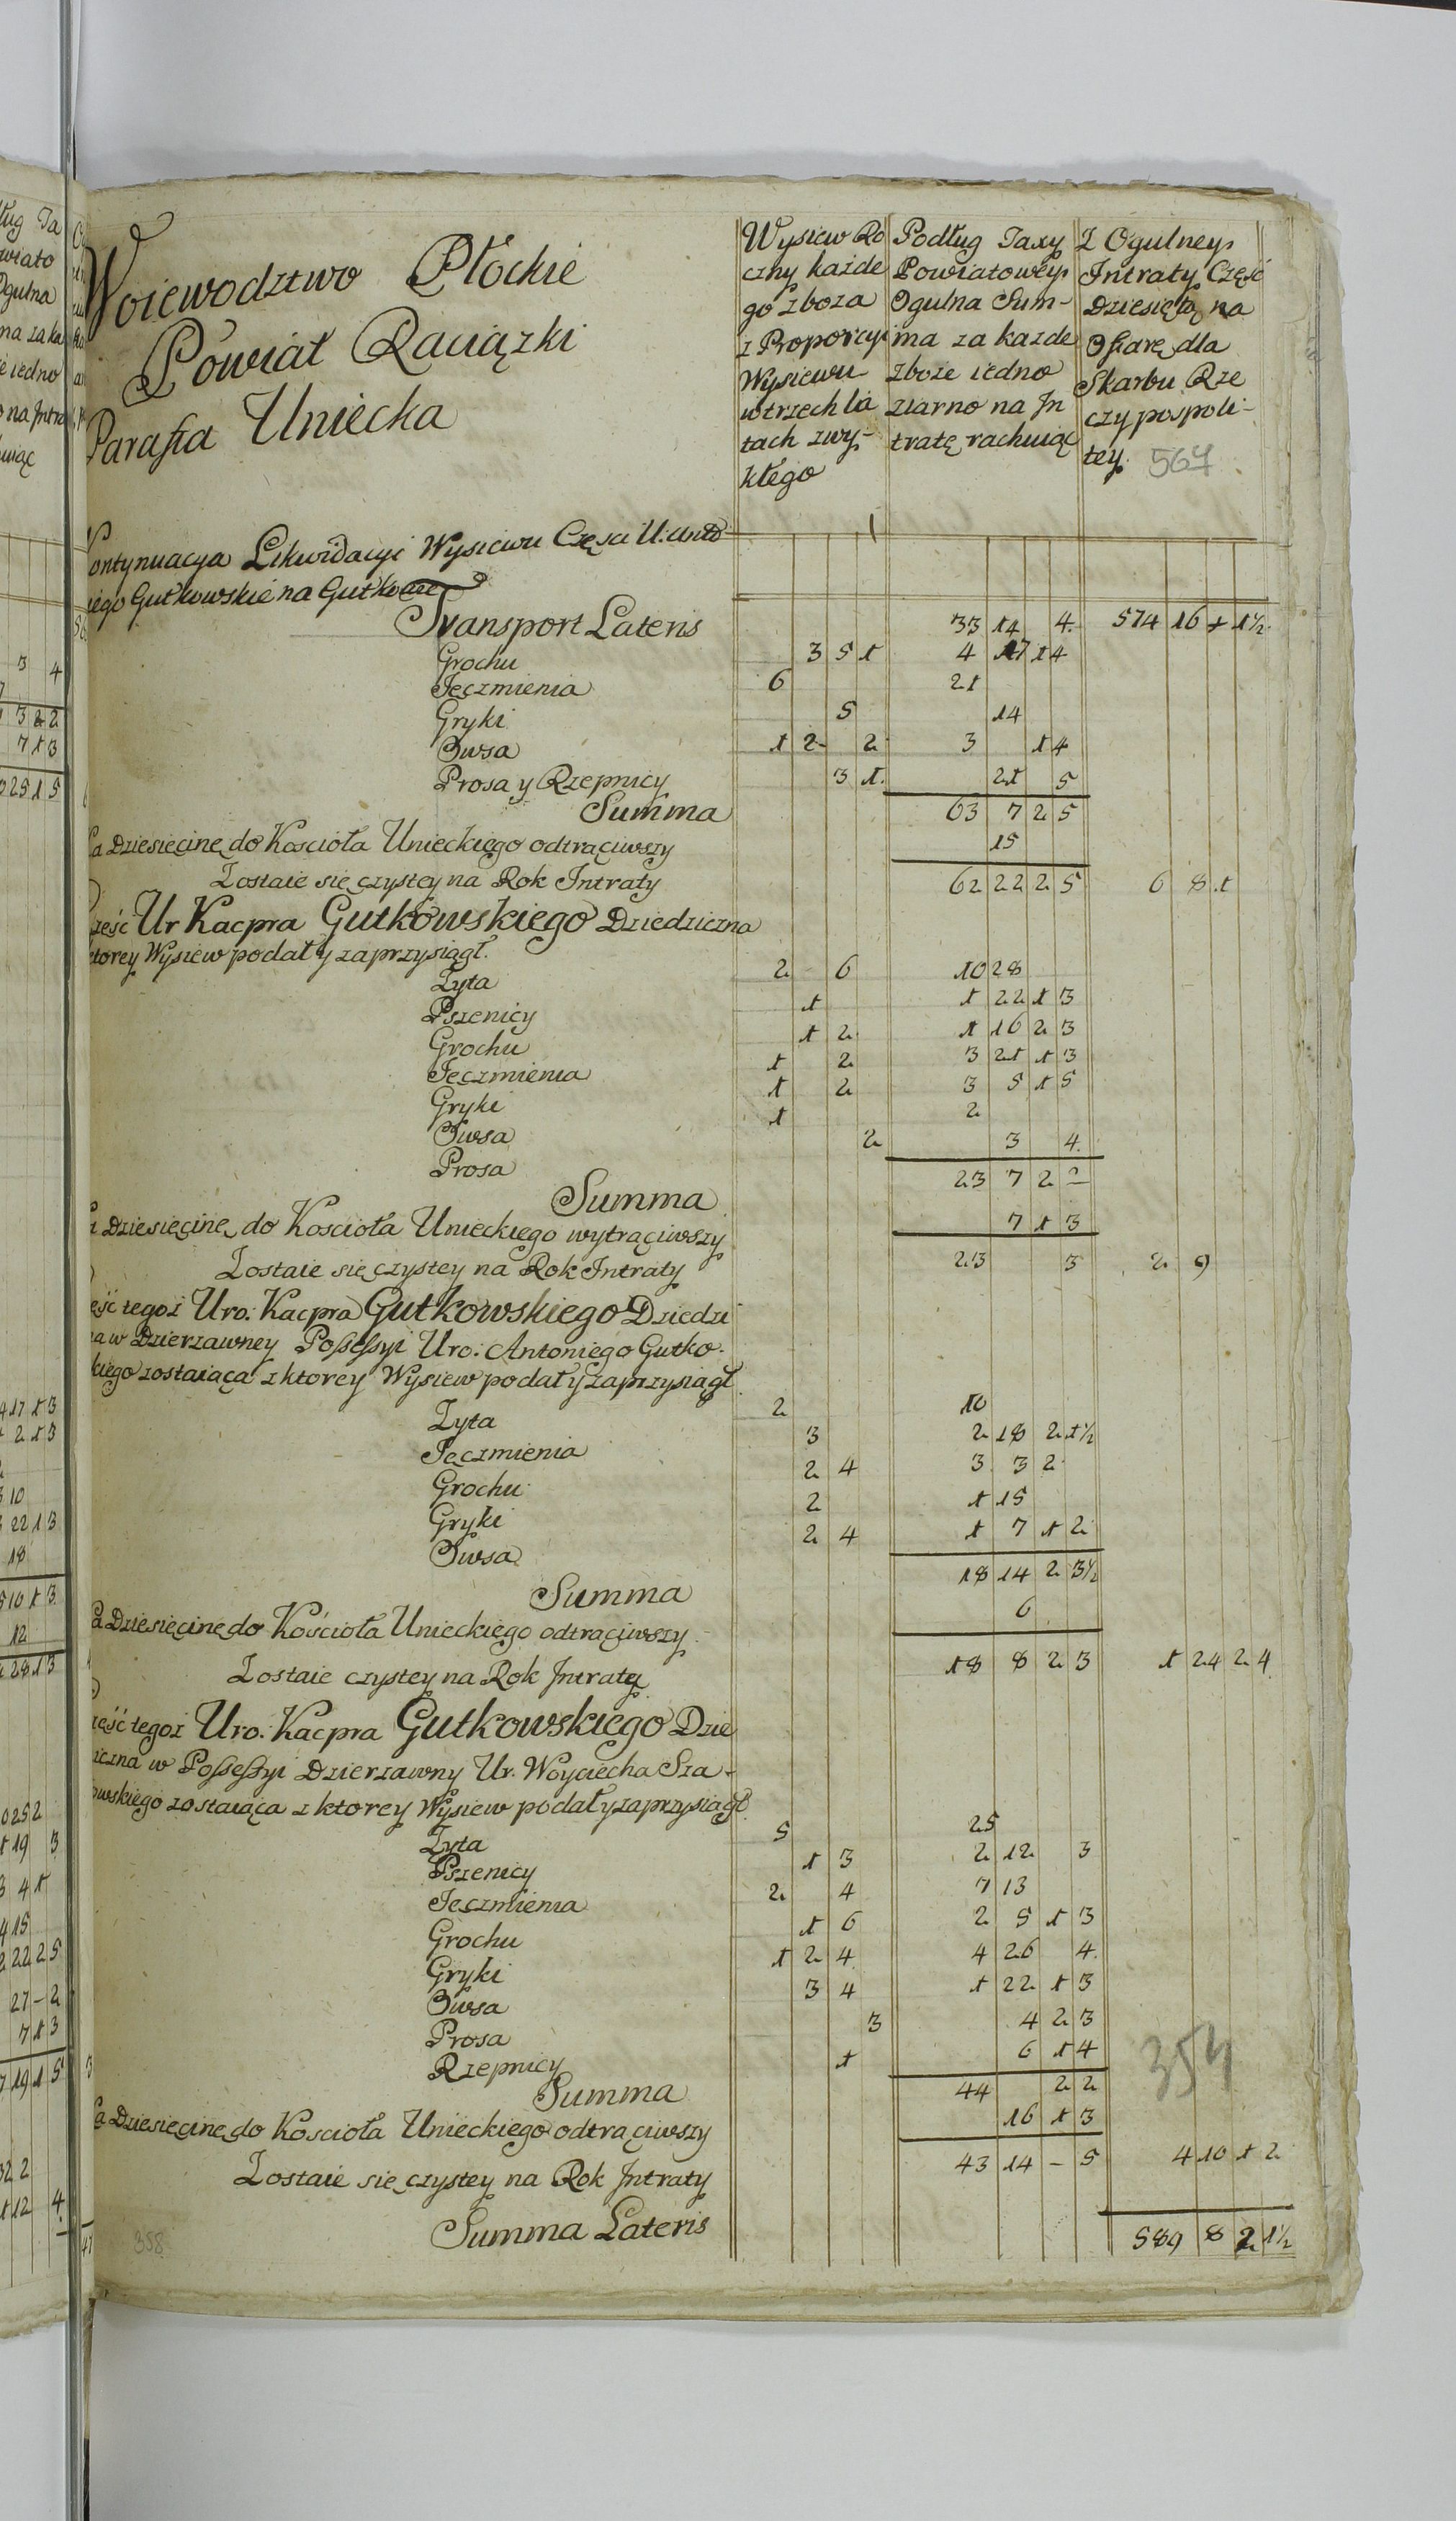 Woiewodztwo Płockie
Powiat Raciązki
Parafia Uniecka
Wysiew Ro
czny każde
go zboza
z Proporcyi
Wysiewu
w trzech la
tach zwy-
kłego
Podług Taxy
Powiatowey
Ogulna Sum-
ma za kazde
zboże iedno
ziarno na In
tratę rachuiąc
Z Ogulney
Intraty Część
Dziesiętą na
Ofiarę dla
Skarbu Rze
czy pospoli-
tey. 567
ontynuacya Likwidacyi Wysiewu Częsci U: Anto
iego Gutkowskie na Gutkowie
Transport Lateris 33 14 4. 574 16 + 1½.
Grochu 3 5 1 4 17 1 4
Jęczmienia 6 21
Gryki 5 14
Owsa 1 2 2 3 1 4
Prosa y Rzepnicy 3 1. 21 5
Summa 63 7 2 5
a Dziesięcinę do Koscioła Unieckiego odtrąciwszy 15
Zostaie się czystey na Rok Intraty 62 22 2 5 6 8 .1
zęść Ur Kacpra Gutkowskiego Dziedziczna
ktorey Wysiew podał y zaprzysiągł.
Zyta 2 6 10 28
Pszenicy 1 1 22 1 3
Grochu 1 2 1 16 2 3
Jęczmienia 1 2 3 21 1 3
Gryki 1 2 3 5 1 5
Owsa 1 2
Prosa 2 3 4.
Summa 23 7 2 –
Dziesięcinę do Koscioła Unieckiego wytrąciwszy 7 1 3
Zostaie się czystey na Rok Intraty 23 3 2 9
ęść tegoż Uro: Kacpra Gutkowskiego Dziedzi
na w Dzierzawney Possessyi Uro: Antoniego Gutko-
kiego zostaiąca z ktorey Wysiew podał y zaprzysiągł
Zyta 2 10
Jęczmienia 3 2 18 2 1½
Grochu 2 4 3 3 2
Gryki 2 1 15
Owsa 2 4 1 7 1 2
Summa 18 14 2 3½
a Dziesięcinę do Kościoła Unieckiego odtrąciwszy 6
Zostaie czystey na Rok Intraty 18 8 2 3 1 24 2 4
zęść tegoż Uro: Kacpra Gutkowskiego Dzie
iczna w Possessyi Dzierzawny Ur. Woyciecha Sza-
owskiego zostaiąca z ktorey Wysiew podał y zaprzysiągł
Zyta 5 25
Pszenicy 1 3 2 12 3
Jęczmienia 2 4 7 13
Grochu 1 6 2 5 1 3
Gryki 1 2 4 4 26 4.
Owsa 3 4 1 22 1 3
Prosa 3 4 2 3
Rzepnicy 1 6 1 4
Summa 44 2 2
a Dziesięcinę do Koscioła Unieckiego odtrąciwszy 16 1 3
Zostaie się czystey na Rok Intraty 43 14 – 5 4 10 1 2
Summa Lateris 589 8 2 1½
354
358